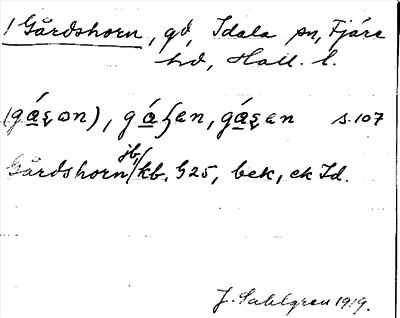 1 Gårdshorn, gd, Idala sn, Fjäre
hd, Hall. l.
s. 107
Gårdshorn jb, kb, § 25, bek, ek Id.
J. Sahlgren 1919.